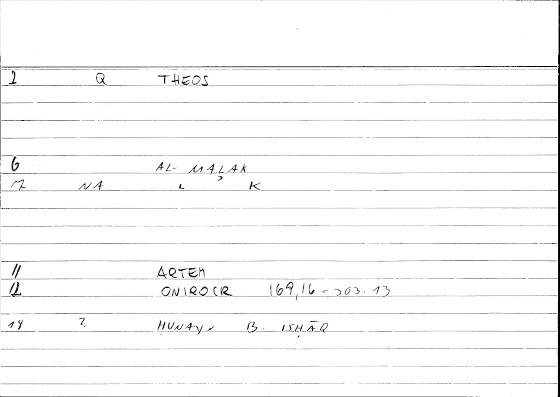 1 Q THEOS
6 AL-MALAK
7 NA L K
11 ARTEM
12 ONIROCR 169,16 - 303.13
14 2. HUNAYN B. ISḤĀQ